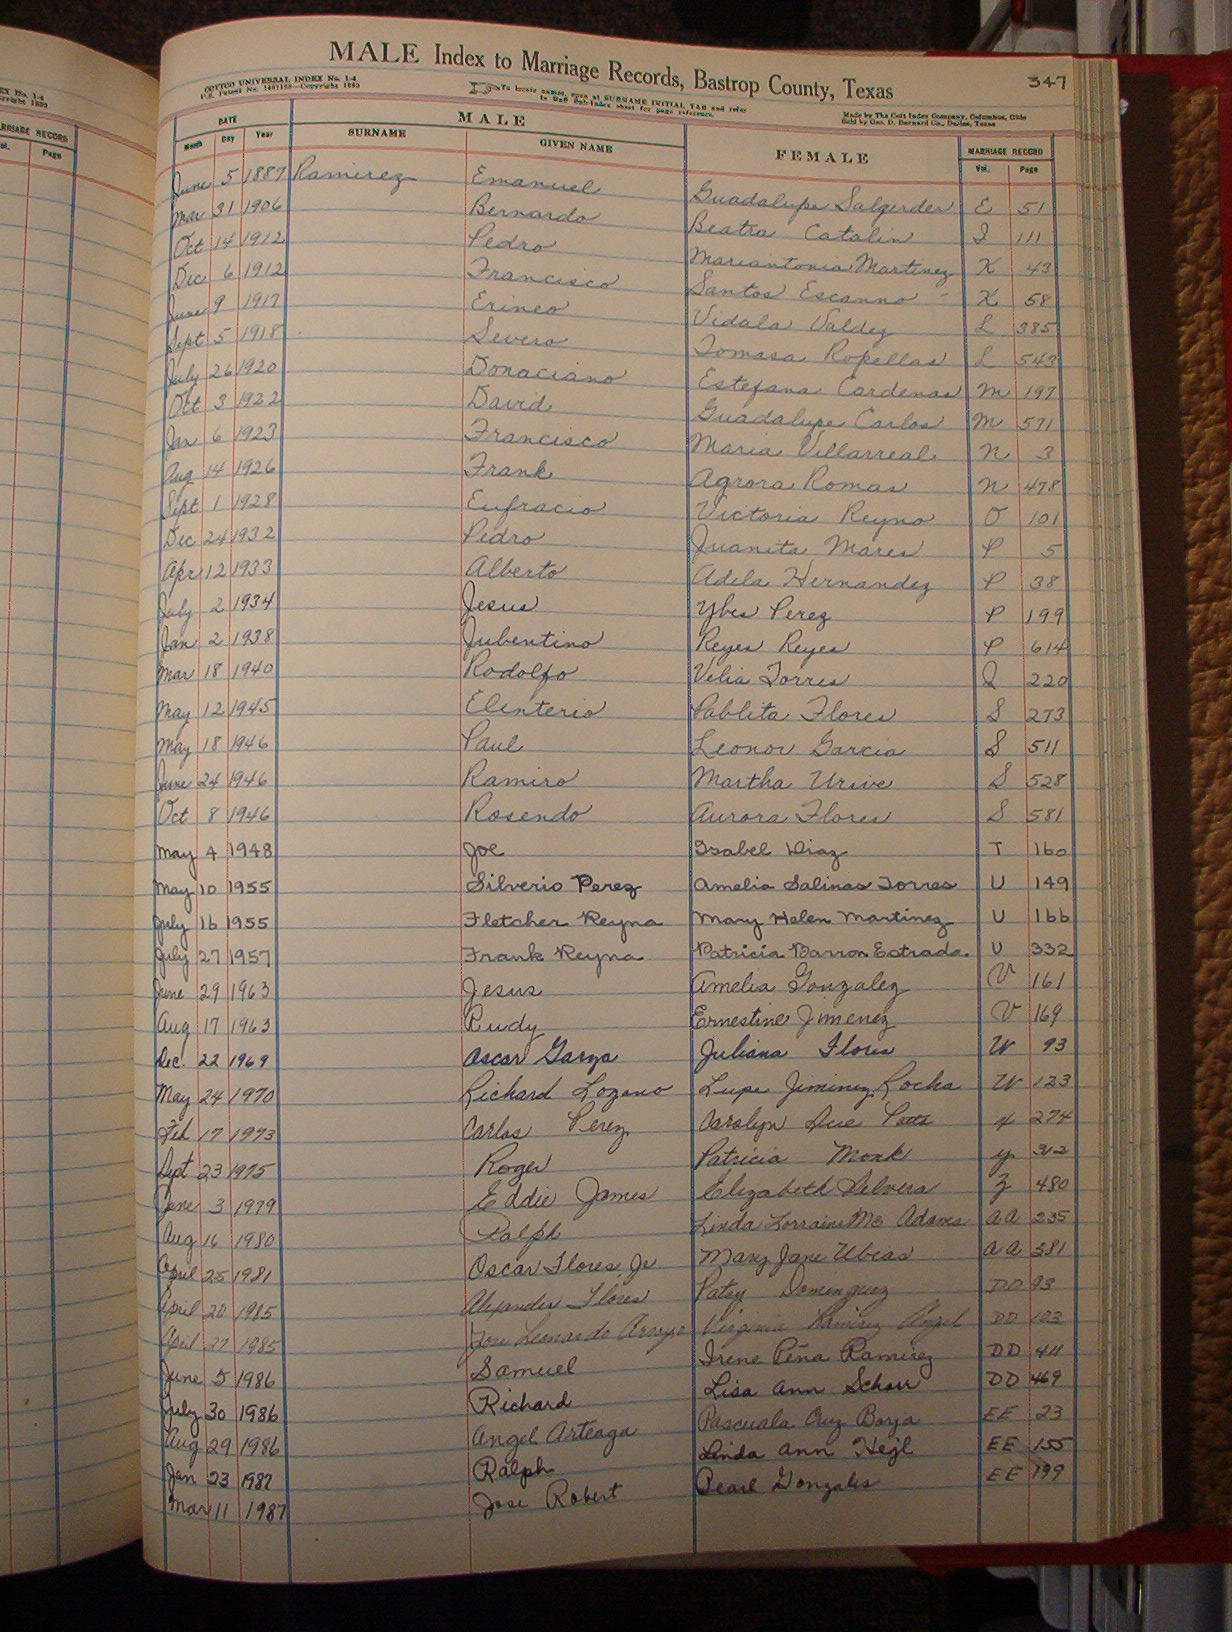 EX No. 1-4
Copyright 1889
MARRIAGE RECORD
Vol. Page
MALE Index to Marriage Records, Bastrop County, Texas 347
COTTCO UNIVERSAL INDEX No. 1-4
To locate names, open at SURNAME INITIAL TAB and refer
Made by The Cott Index Company, Columbus, Ohio
Sold by Geo. D. Barnard Co., Dallas, Texas
DATE MALE FEMALE MARRIAGE RECORD
Month Day Year SURNAME GIVEN NAME Vol. Page
June 5 1887 Ramirez Emanuel Guadalupe Salgerder E 51
Mar 31 1906 Bernardo Beatra Catalin I 111
Oct 14 1912 Pedro Mariantonia Martinez K 43
Dec 6 1912 Francisco Santos Escanno K 58
June 9 1917 Erineo Vidala Valdez L 385
Sept 5 1918 Severo Tomasa Ropellas L 543
July 26 1920 Donaciano Estefana Cardenas M 197
Oct 3 1922 David Guadalupe Carlos M 571
Jan 6 1923 Francisco Maria Villarreal N 3
Aug 14 1926 Frank Agrora Romas N 478
Sept 1 1928 Eufracio Victoria Reyno O 101
Dec 24 1932 Pedro Juanita Mares P 5
Apr 12 1933 Alberto Adela Hernandez P 38
July 2 1934 Jesus Ybes Perez P 199
Jan 2 1938 Jubentino Reyes Reyes P 614
Mar 18 1940 Rodolfo Velia Torres Q 220
May 12 1945 Elinterio Pablita Flores S 273
May 18 1946 Paul Leonor Garcia S 511
June 24 1946 Ramiro Martha Urive S 528
Oct 8 1946 Rosendo Aurora Flores S 581
May 4 1948 Joe Isabel Diaz T 160
May 10 1955 Silverio Perez Amelia Salinas Torres U 149
July 16 1955 Fletcher Reyna Mary Helen Martinez U 166
July 27 1957 Frank Reyna Patricia Barron Estrada U 332
June 29 1963 Jesus Amelia Gonzalez V 161
Aug 17 1963 Rudy Ernestine Jimenez V 169
Dec. 22 1969 Oscar Garza Juliana Flores W 93
May 24 1970 Richard Lozano Lupe Jiminez Rocha W 123
Feb 17 1973 Carlos Perez Carolyn Sue Potts X 274
Sept 23 1975 Roger Patricia Monk Y 312
June 3 1979 Eddie James Elizabeth Silvera Z 480
Aug 16 1980 Ralph Linda Lorraine Mc Adams AA 235
April 25 1981 Oscar Flores Jr Mary Jane Ubias AA 381
April 20 1985 Alexander Flores Patsy Domenguez DD 93
April 27 1985 Jose Leonardo Arroyo Virginia Ramirez Angel DD 103
June 5 1986 Samuel Irene Peña Ramirez DD 411
July 30 1986 Richard Lisa Ann Schorr DD 469
Aug 29 1986 Angel Arteaga Pascuala Cruz Borja EE 23
Jan 23 1987 Ralph Linda Ann Hejl EE 155
Mar 11 1987 Jose Robert Pearl Gonzales EE 199